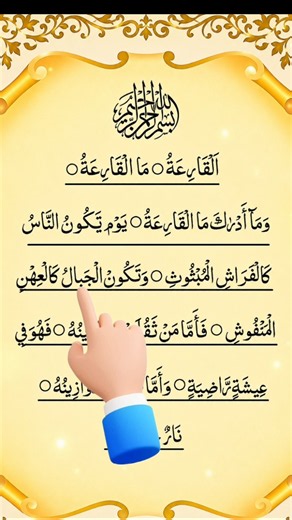 بسم الله الرحمن الرحيم
اَلْقَارِعَةُ ○ مَا الْقَارِعَةُ ○
وَمَآ أَدْرٰكَ مَا الْقَارِعَةُ ○ يَوْم تَكُونُ النَّاسُ
كَالْفَرَاشِ الْمُبْثُوثِ ○ وَتَكُونُ الْجَبِالُ كَالْعِهْنِ
الْمَنْفُوشِ ○ فَأَمَّا مَنْ ○ فَهُوَ فِي
عِيشَةٍ رَّاضِيَةٍ ○ وَأَمَّا ○
نَارٌ